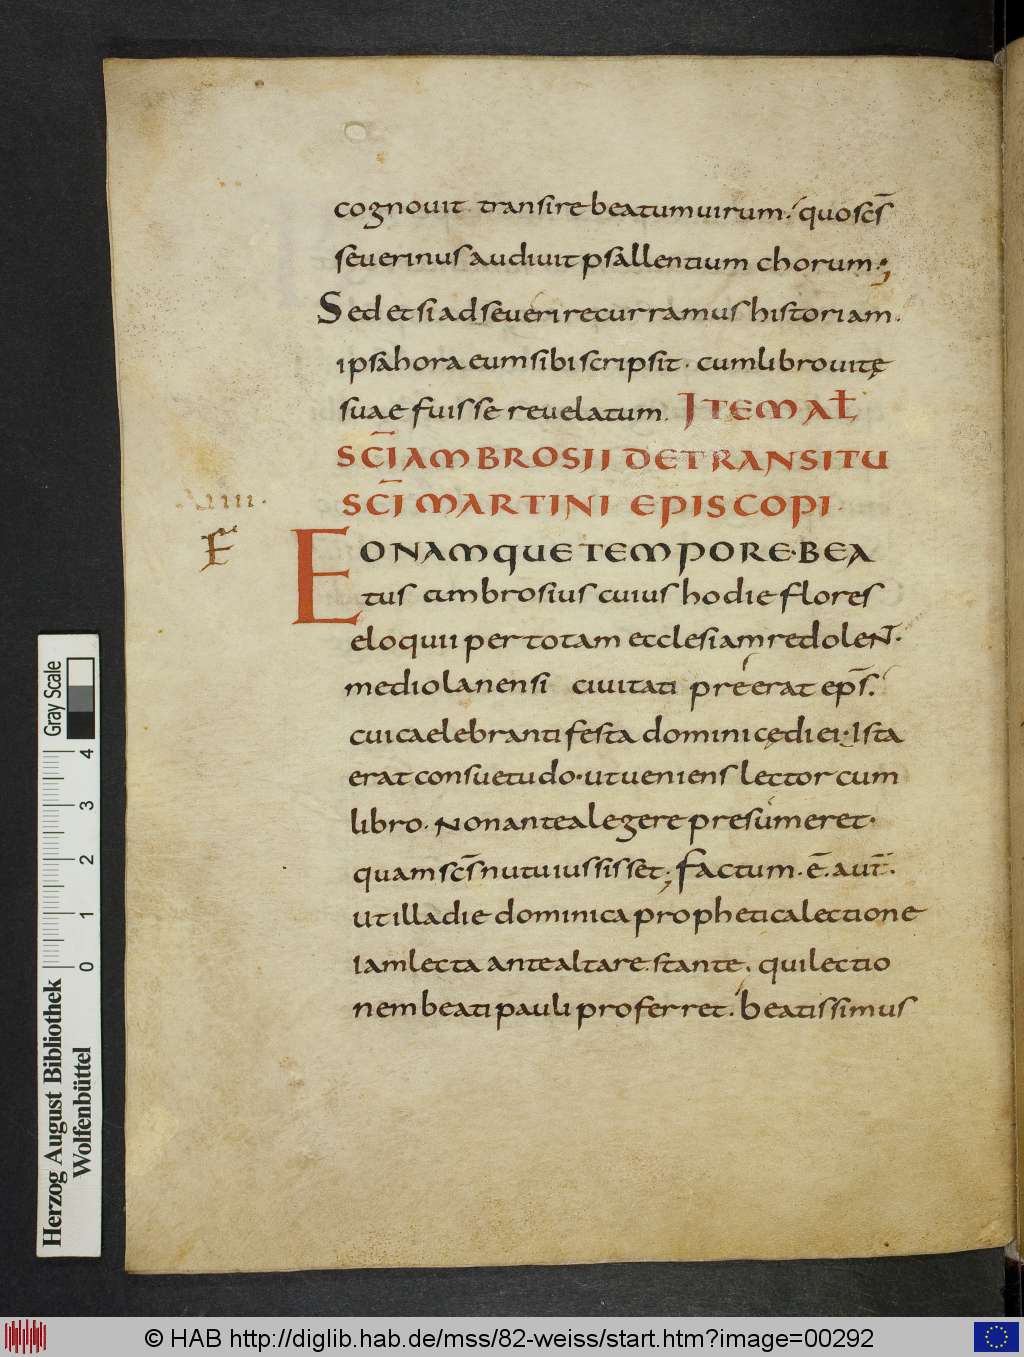 cognouit transire beatum uirum. quo sc̄s
seuerinus audiuit psallentium chorum;
Sed et si ad seueri recurramus historiam.
ipsa hora eum sibi scripsit. cum libro uitę
suae fuisse reuelatum. ITEM AƚƚA
SC̄I AMBROSII DE TRANSITU
SC̄I MARTINI EPISCOPI.
EO NAMQUE TEMPORE. BEA
F
tus ambrosius cuius hodie flores
eloquii per totam ecclesiam redoleNT.
mediolanensi ciuitati preerat ep̄s.
cui caelebranti festa dominicę diei. Ista
erat consuetudo. ut ueniens lector cum
libro. Non antea legere presumeret.
quam sc̄s nutu iussisset; factum. ē. aut̄.
ut illa die dominica prophetica lectione
iam lecta ante altare stante. qui lectio
nem beati pauli proferret. beatissimus
Herzog August Bibliothek
Wolfenbüttel
0 1 2 3 4
Gray Scale
© HAB http://diglib.hab.de/mss/82-weiss/start.htm?image=00292